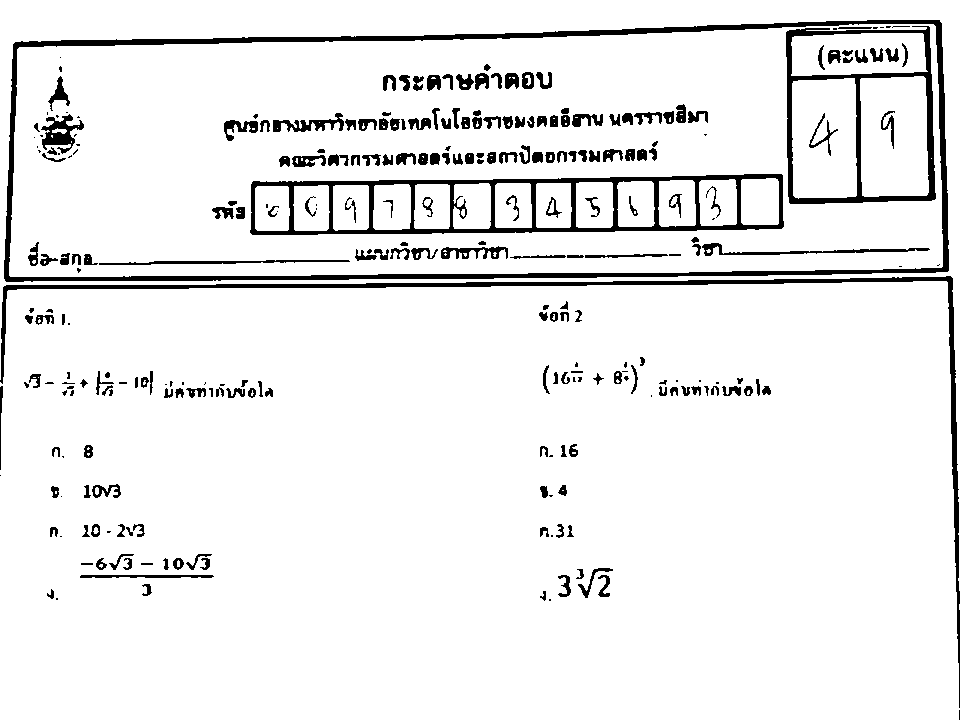 (คะแนน)
4 9
กระดาษคำตอบ
ศูนย์กลางมหาวิทยาลัยเทคโนโลยีราชมงคลอีสาน นครราชสีมา
คณะวิศวกรรมศาสตร์และสถาปัตยกรรมศาสตร์
รหัส 0 0 9 7 8 8 3 4 5 6 9 3
ชื่อ-สกุล แผนกวิชา/สาขาวิชา วิชา
ข้อที่ 1.
√3 - + | - 10| มีค่าเท่ากับข้อใด
ก. 8
ข. 10√3
ค. 10 - 2√3
ง. (-6√3 - 10√3)/3
ข้อที่ 2
มีค่าเท่ากับข้อใด
ก. 16
ข. 4
ค.31
ง. 3∛2